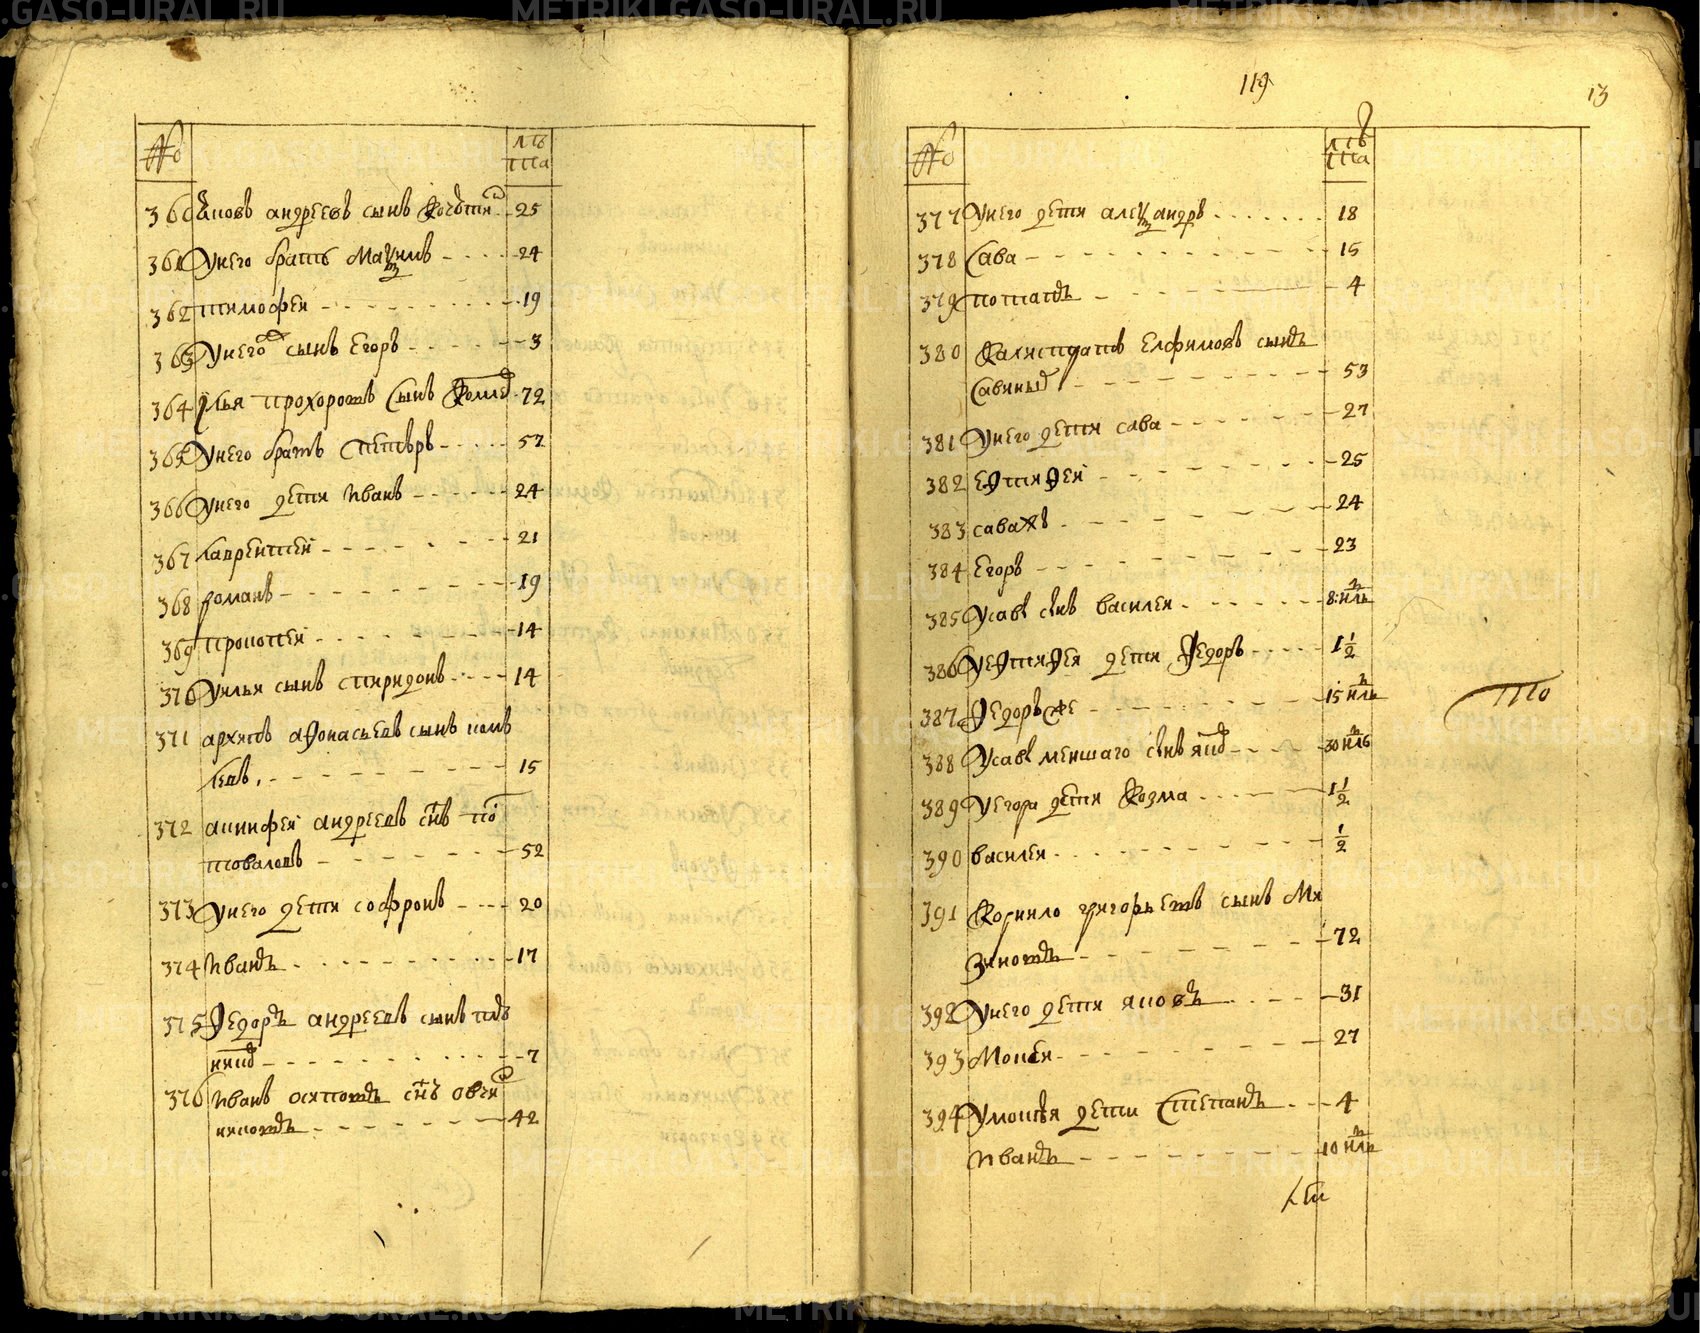 № лѣта
360 Яковъ андреевъ сынъ 25
361 Унего братъ Маѯимъ 24
362 тимофеи 19
363 Унего сынъ Егоръ 3
364 Илья прохоровъ сынъ 72
365 Унего братъ Петъръ 57
366 Унего дети Иванъ 24
367 Лаврентеи 21
368 романъ 19
369 прокопеи 14
370 Уильи сынъ спиридонъ 14
371 архипъ аѳонасьевъ сынъ
15
372 акинфеи андреевъ снъ по
товаловъ 52
373 Унего дети софронъ 20
374 Иванъ 17
375 Ѳедоръ андреевъ сынъ
7
376 Иванъ осиповъ снъ овчи
никовъ 42
119
13
№ лѣта
377 Унего дети алеѯандръ 18
378 Сава 15
379 потапъ 4
380 Калистратъ Елфимовъ сынъ
Савиныхъ 53
381 Унего дети сава 27
382 Еѳтиѳеи 25
383 саваж 24
384 Егоръ 23
385 Усавы снъ василеи 8: нлъ
386 Уеѳтиѳея дети Ѳедоръ 1 1/2
387 Ѳедоръже 15 нлъ
388 Усавы меншаго снъ 30 нлъ
389 Уегора дети Козма 1 1/2
390 василеи 1/2
391 Корнило григорьевъ сынъ Ми
зиновъ 72
392 Унего дети яковъ 31
393 Мокеи 27
394 Умокея дети Степанъ 4
Иванъ 10 нлъ